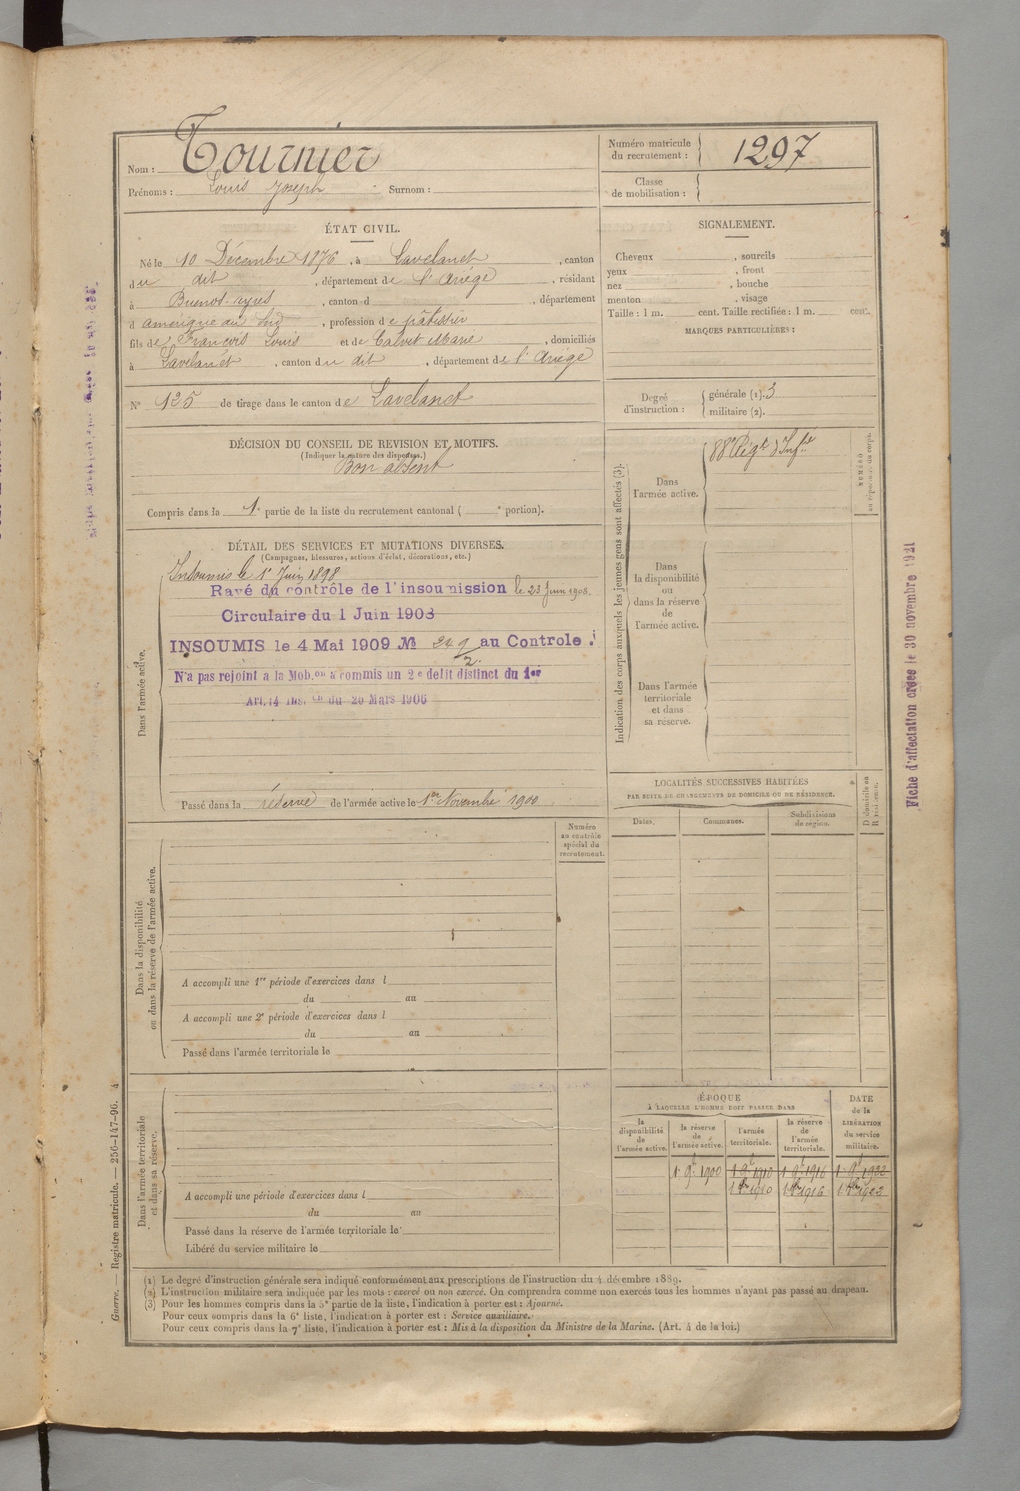 Nom : Tournier
Prénoms : Louis Joseph Surnom :
Numéro matricule du recrutement : 1297
Classe de mobilisation :
ÉTAT CIVIL.
Né le 10 Décembre 1876, à Lavelanet, canton
du dit, département de l'Ariège, résidant
à Buenos-ayres, canton d , département
d'amérique du Sud, profession de pâtissier
fils de François Louis et de Calvet Marie, domiciliés
à Lavelanet, canton du dit, département de l'Ariège
N° 125 de tirage dans le canton de Lavelanet
DÉCISION DU CONSEIL DE REVISION ET MOTIFS.
(Indiquer la nature des dispenses.)
Bon absent
Compris dans la 1e partie de la liste du recrutement cantonal ( e portion).
SIGNALEMENT.
Cheveux , sourcils
yeux , front
nez , bouche
menton , visage
Taille : 1 m. cent. Taille rectifiée : 1 m. cent.
MARQUES PARTICULIÈRES :
Degré d'instruction : générale (1). 3
militaire (2).
Indication des corps auxquels les jeunes gens sont affectés (3).
Dans l'armée active.
88e Régt d'Infie
NUMÉRO
au répertoire du corps.
Dans la disponibilité ou dans la réserve de l'armée active.
Dans l'armée territoriale et dans sa réserve.
DÉTAIL DES SERVICES ET MUTATIONS DIVERSES.
(Campagnes, blessures, actions d'éclat, décorations, etc.)
Dans l'armée active.
Insoumis le 1er Juin 1898
Rayé du contrôle de l'insoumission le 23 Juin 1908.
Circulaire du 1 Juin 1908
INSOUMIS le 4 Mai 1909 № 249/2 au Controle
N'a pas rejoint a la Mob.on a commis un 2e délit distinct du 1er
Art. 14 Ins.on du 20 Mars 1906
Passé dans la réserve de l'armée active le 1er Novembre 1900
LOCALITÉS SUCCESSIVES HABITÉES
PAR SUITE DE CHANGEMENTS DE DOMICILE OU DE RÉSIDENCE.
Dates.
Communes.
Subdivisions de région.
D domicile ou R résidence.
Numéro au contrôle spécial du recrutement.
Dans la disponibilité ou dans la réserve de l'armée active.
A accompli une 1re période d'exercices dans l
du au
A accompli une 2e période d'exercices dans l
du au
Passé dans l'armée territoriale le
Dans l'armée territoriale et dans sa réserve.
A accompli une période d'exercices dans l
du au
Passé dans la réserve de l'armée territoriale le
Libéré du service militaire le
ÉPOQUE
À LAQUELLE L'HOMME DOIT PASSER DANS
la disponibilité de l'armée active.
la réserve de l'armée active.
l'armée territoriale.
la réserve de l'armée territoriale.
DATE de la LIBÉRATION du service militaire.
1 9b 1900 1 9b 1910 1 9b 1916 1 9b 1922
(1) Le degré d'instruction générale sera indiqué conformément aux prescriptions de l'instruction du 4 décembre 1889.
(2) L'instruction militaire sera indiquée par les mots : exercé ou non exercé. On comprendra comme non exercés tous les hommes n'ayant pas passé au drapeau.
(3) Pour les hommes compris dans la 5e partie de la liste, l'indication à porter est : Ajourné.
Pour ceux compris dans la 6e liste, l'indication à porter est : Service auxiliaire.
Pour ceux compris dans la 7e liste, l'indication à porter est : Mis à la disposition du Ministre de la Marine. (Art. 4 de la loi.)
Guerre. — Registre matricule. — 256-147-96. 4
Fiche d'affectation créée le 30 novembre 1921